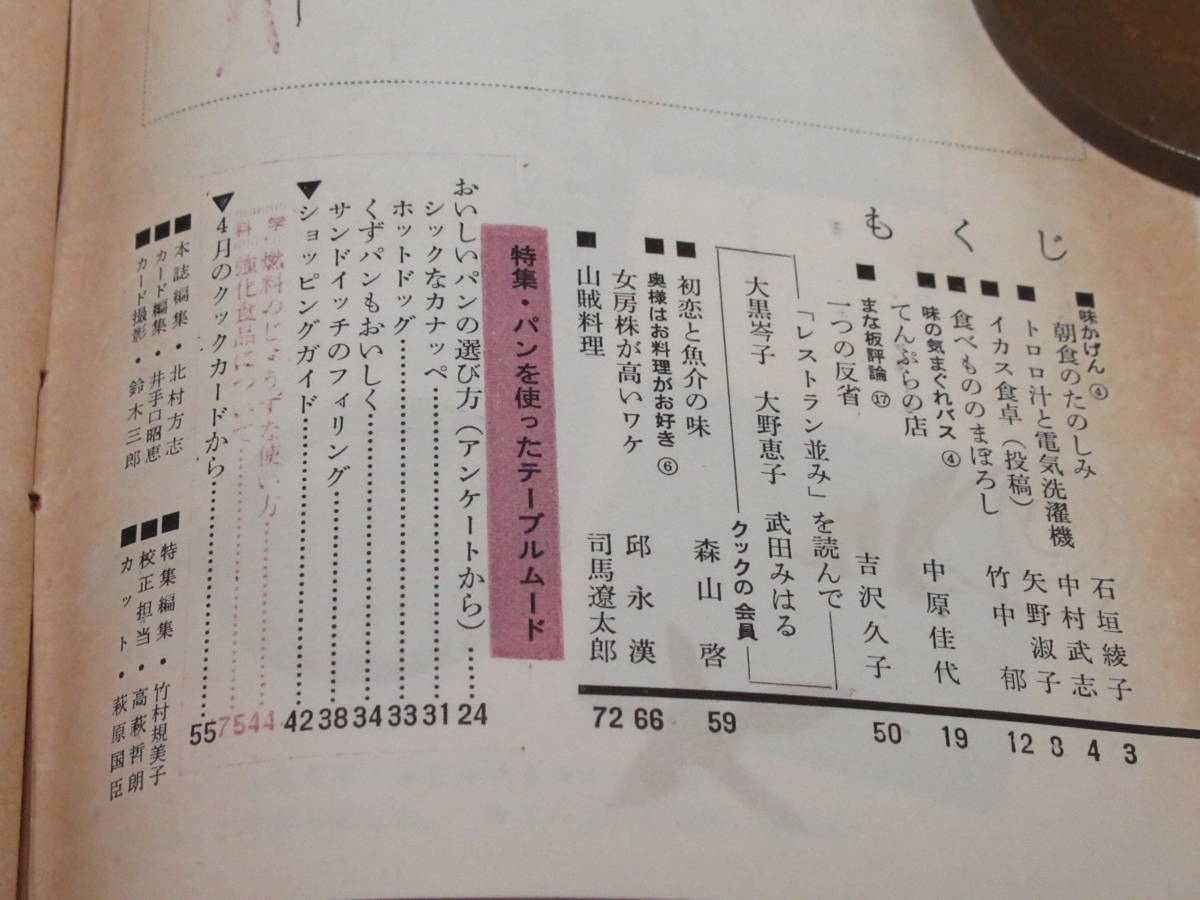 もくじ
■味かげん④
朝食のたのしみ 石垣綾子 3
■トロロ汁と電気洗濯機 中村武志 4
■イカス食卓（投稿） 矢野淑子 8
■食べもののまぼろし 竹中郁 12
■味の気まぐれバス④
てんぷらの店 中原佳代 19
■まな板評論⑰
一つの反省 吉沢久子 50
「レストラン並み」を読んで
大黒岑子 大野恵子 武田みはる
クックの会員
■初恋と魚介の味 森山啓 59
■奥様はお料理がお好き⑥
女房株が高いワケ 邱永漢 66
■山賊料理 司馬遼太郎 72
特集・パンを使ったテーブルムード
おいしいパンの選び方（アンケートから）……24
シックなカナッペ……31
ホットドッグ……33
くずパンもおいしく……34
サンドイッチのフィリング……38
▼ショッピングガイド……42
学・燃料のじょうずな使い方……44
科 強化食品について……75
▼4月のクックカードから……55
■本誌編集・北村方志
■カード編集・井手口昭恵
■カード撮影・鈴木三郎
■特集編集・竹村規美子
■校正担当・高萩哲朗
■カット・萩原国臣